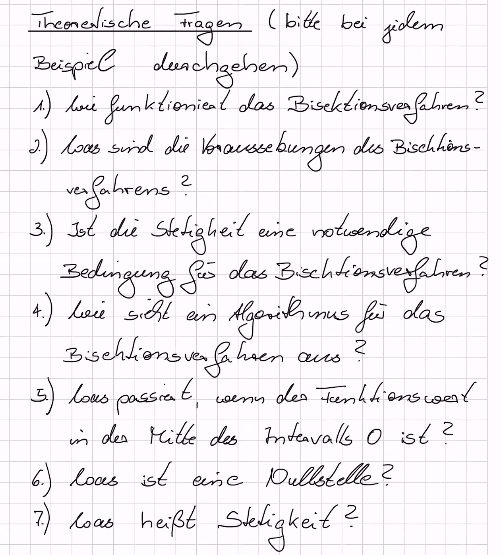 Theoretische Fragen (bitte bei jedem
Beispiel durchgehen)
1.) Wie funktioniert das Bisektionsverfahren?
2.) Was sind die Voraussetzungen des Bisektions-
verfahrens?
3.) Ist die Stetigkeit eine notwendige
Bedingung für das Bisektionsverfahren?
4.) Wie sieht ein Algorithmus für das
Bisektionsverfahren aus?
5.) Was passiert, wenn der Funktionswert
in der Mitte des Intervalls 0 ist?
6.) Was ist eine Nullstelle?
7.) Was heißt Stetigkeit?